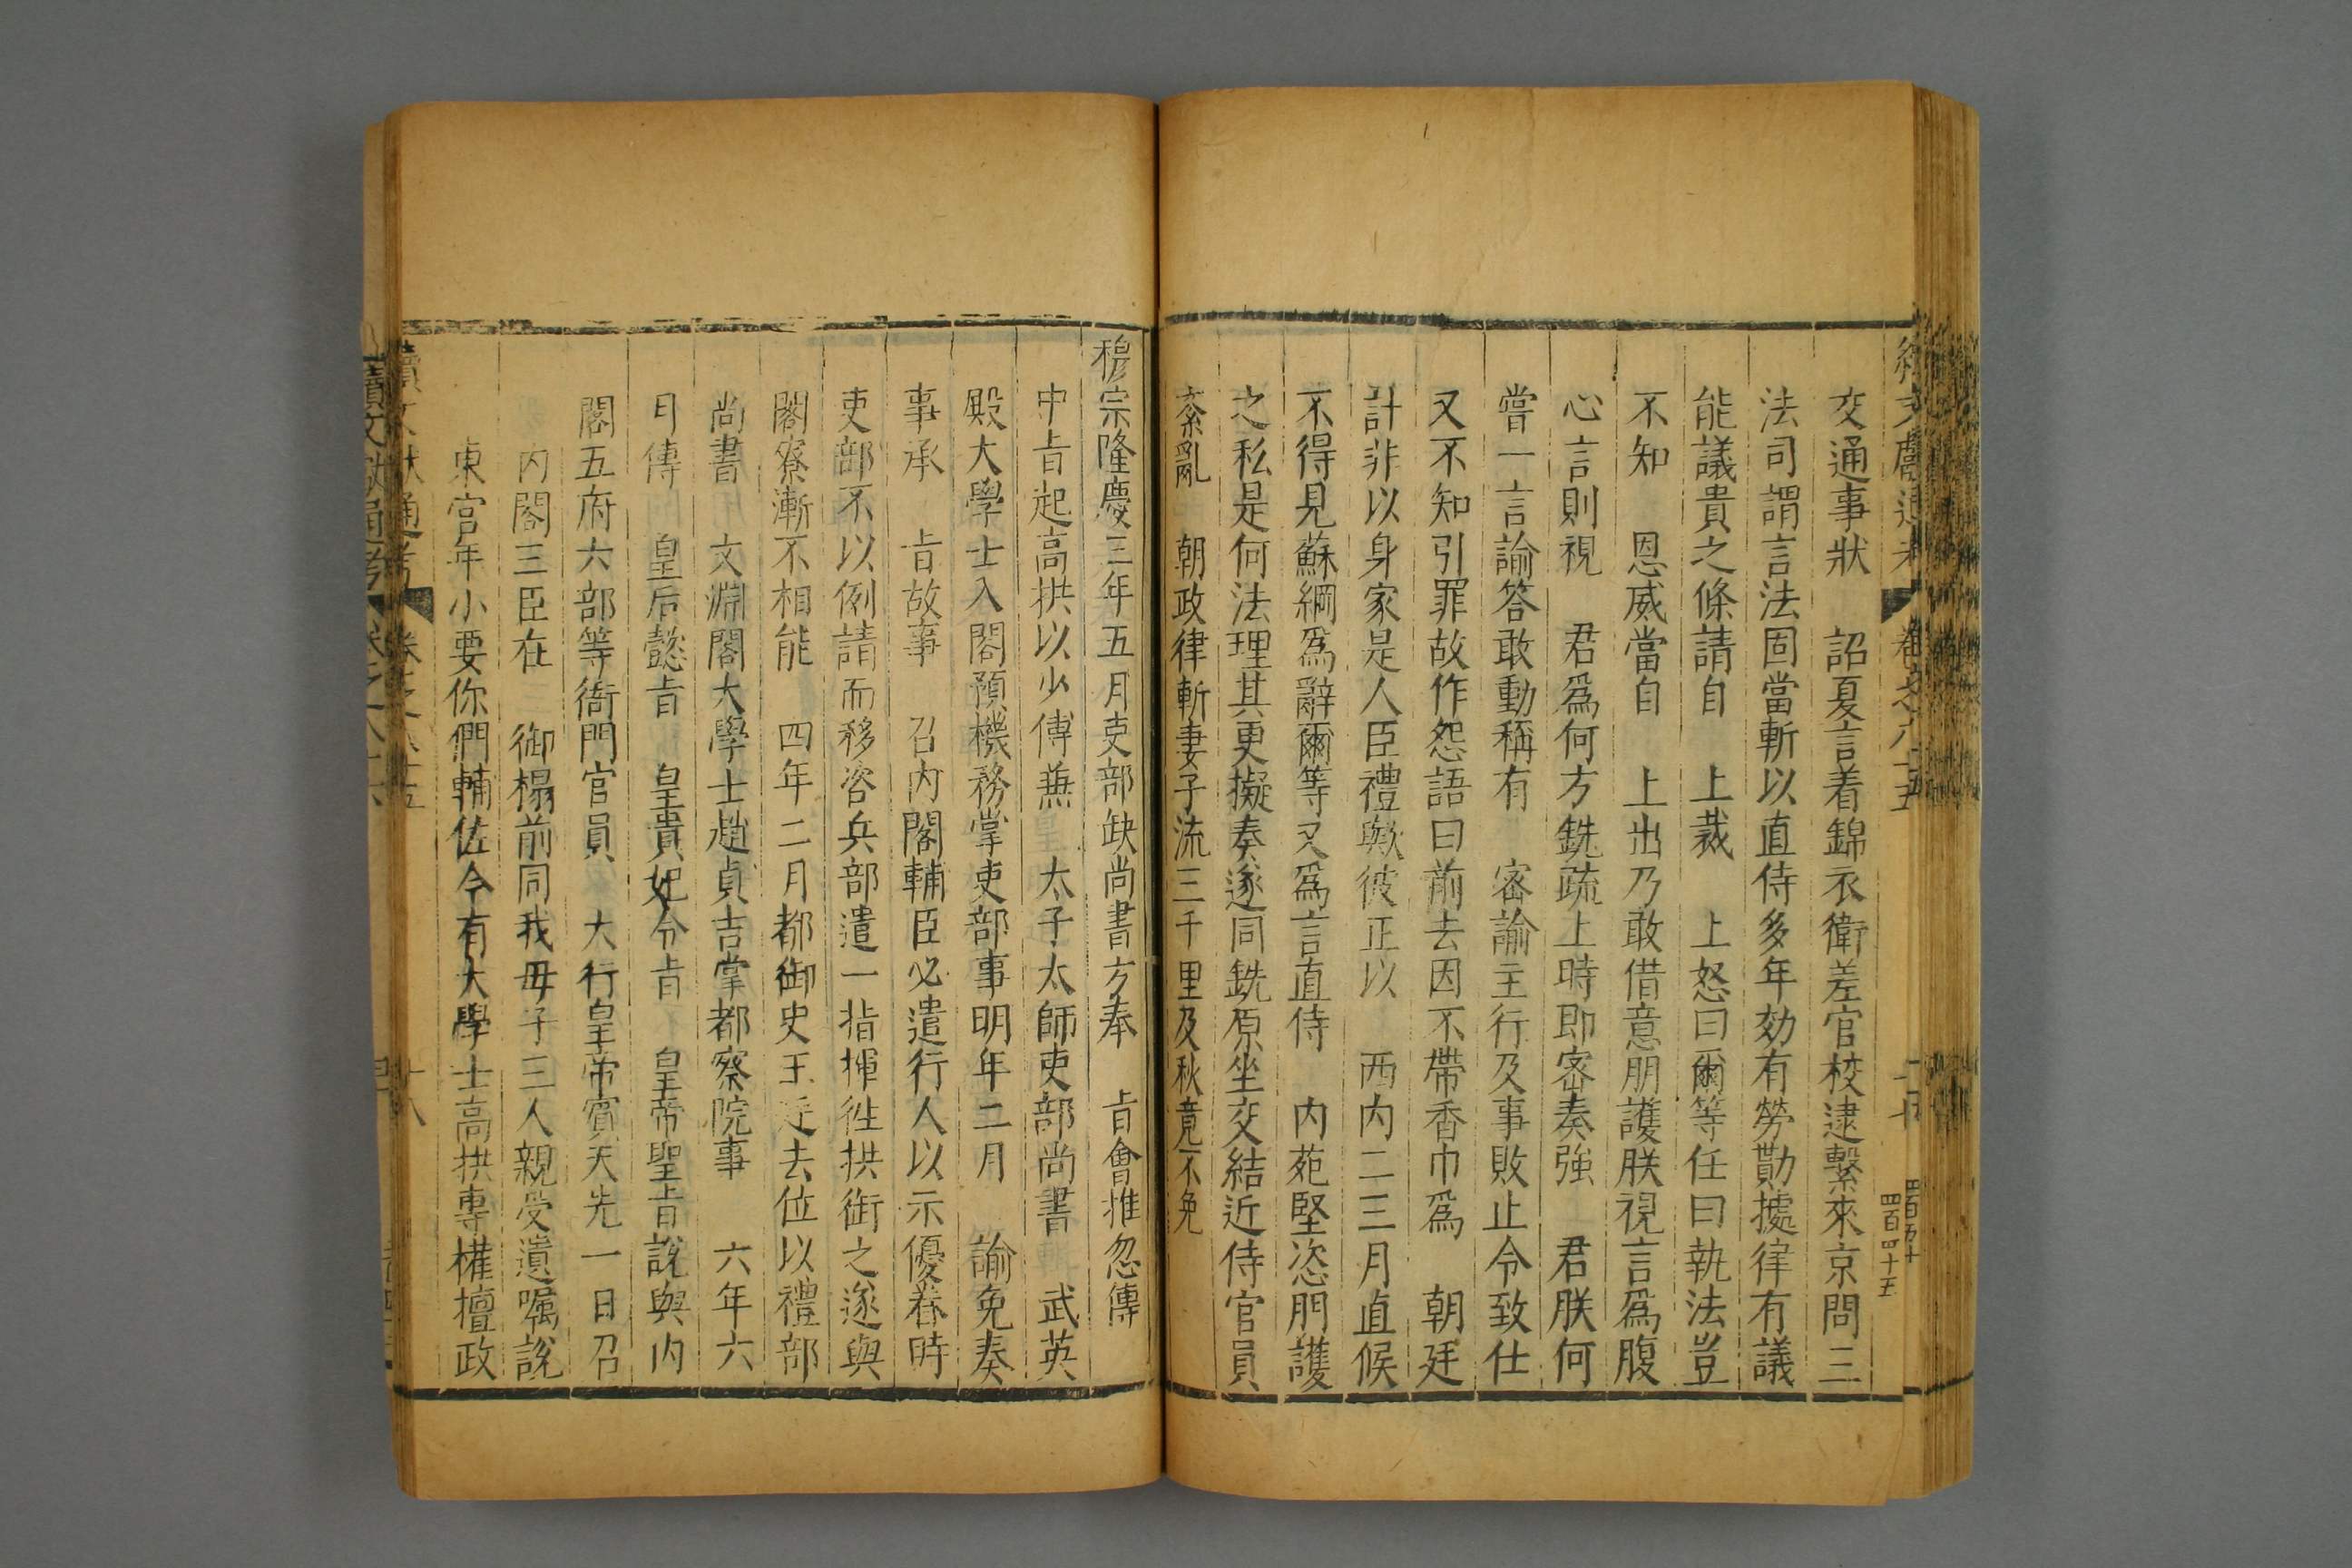 交通事狀　詔夏言着錦衣衛差官校逮繫來京問三
法司謂言法固當斬以直侍多年効有勞勩據律有議
能議貴之條請自　上裁　上怒曰爾等任曰執法豈
不知　恩威當自　上出乃敢借意朋護朕視言爲腹
心言則視　君爲何方銑疏上時即密奏強　君朕何
嘗一言諭答敢動稱有　密諭主行及事敗止令致仕
又不知引罪故作怨語曰前去因不帶香巾爲　朝廷
計非以身家是人臣禮歟彼正以　西内二三月直候
不得見蘇綱爲辭爾等又爲言直侍　内苑堅恣朋護
之私是何法理其更擬奏遂同銑原坐交結近侍官員
紊亂　朝政律斬妻子流三千里及秋竟不免
穆宗隆慶三年五月吏部缺尚書方奉　㫖會推忽傳
中㫖起高拱以少傅兼　太子太師吏部尚書　武英
殿大學士入閣預機務掌吏部事明年二月　諭免奏
事承　㫖故事　召内閣輔臣必遣行人以示優眷時
吏部不以例請而移咨兵部遣一指揮徃拱銜之遂與
閣寮漸不相能　四年二月都御史王廷去位以禮部
尚書　文淵閣大學士趙貞吉掌都察院事　六年六
日傳　皇后懿㫖　皇貴妃令㫖　皇帝聖㫖說與内
閣五府六部等衙門官員　大行皇帝賓天先一日召
内閣三臣在　御榻前同我母子三人親受遺囑說
東宮年小要你們輔佐今有大學士高拱專權擅政
續文獻通考　卷之八十五　十八